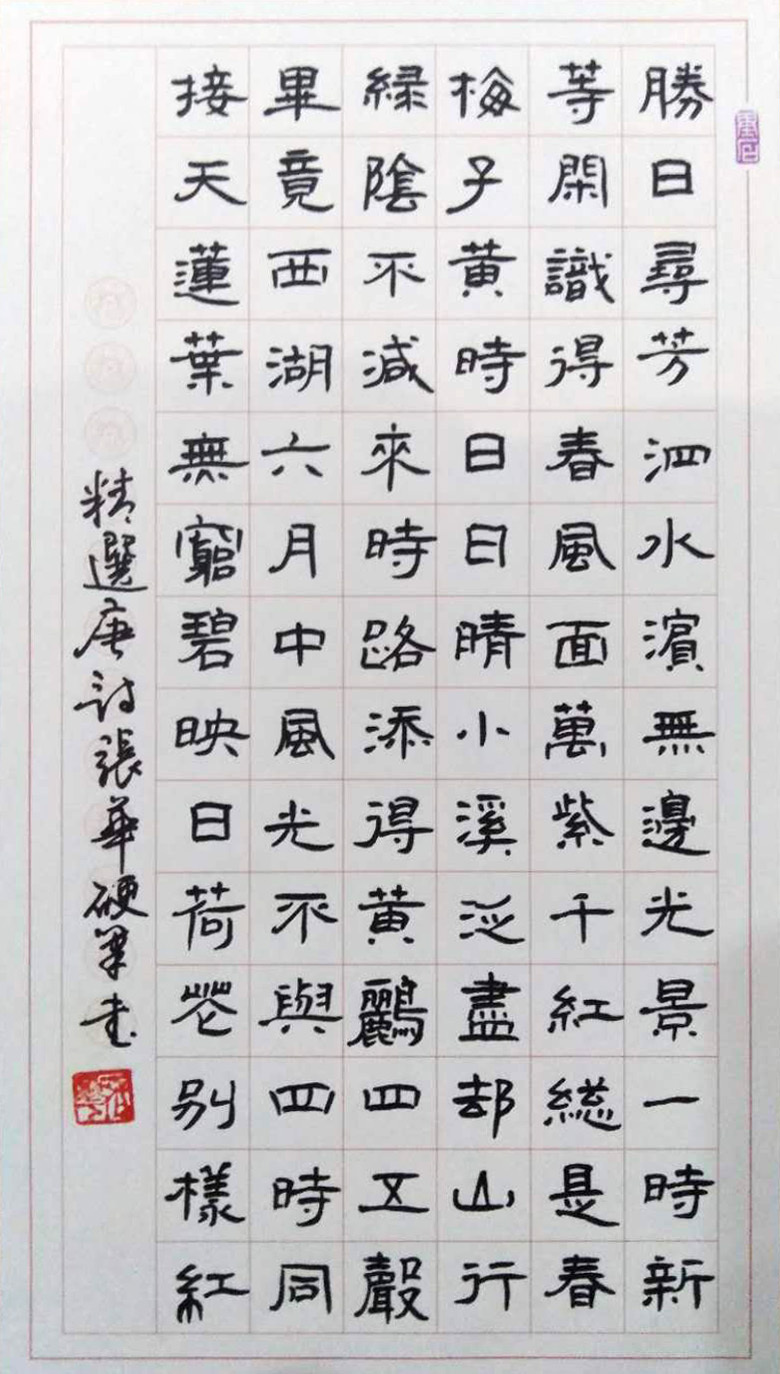 勝日尋芳泗水濱無邊光景一時新
等閑識得春風面萬紫千紅總是春
梅子黄時日日晴小溪泛盡却山行
緑陰不減來時路添得黄鸝四五聲
畢竟西湖六月中風光不與四時同
接天蓮葉無窮碧映日荷花别樣紅
精選唐詩張華硬筆書